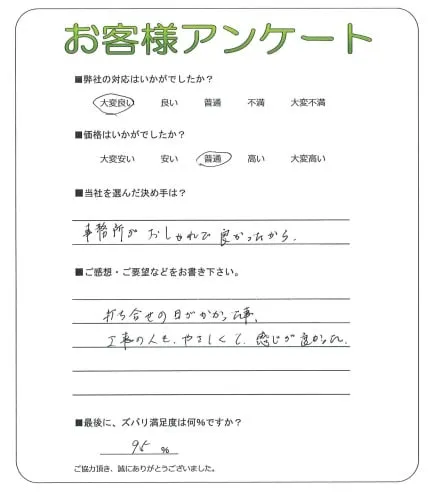 お客様アンケート
■弊社の対応はいかがでしたか?
大変良い 良い 普通 不満 大変不満
■価格はいかがでしたか?
大変安い 安い 普通 高い 大変高い
■当社を選んだ決め手は?
事務所がおしゃれで良かったから。
■ご感想・ご要望などをお書き下さい。
打ち合せの日がかかった事。
工事の人も、やさしくて、感じが良かった。
■最後に、ズバリ満足度は何%ですか?
95 %
ご協力頂き、誠にありがとうございました。